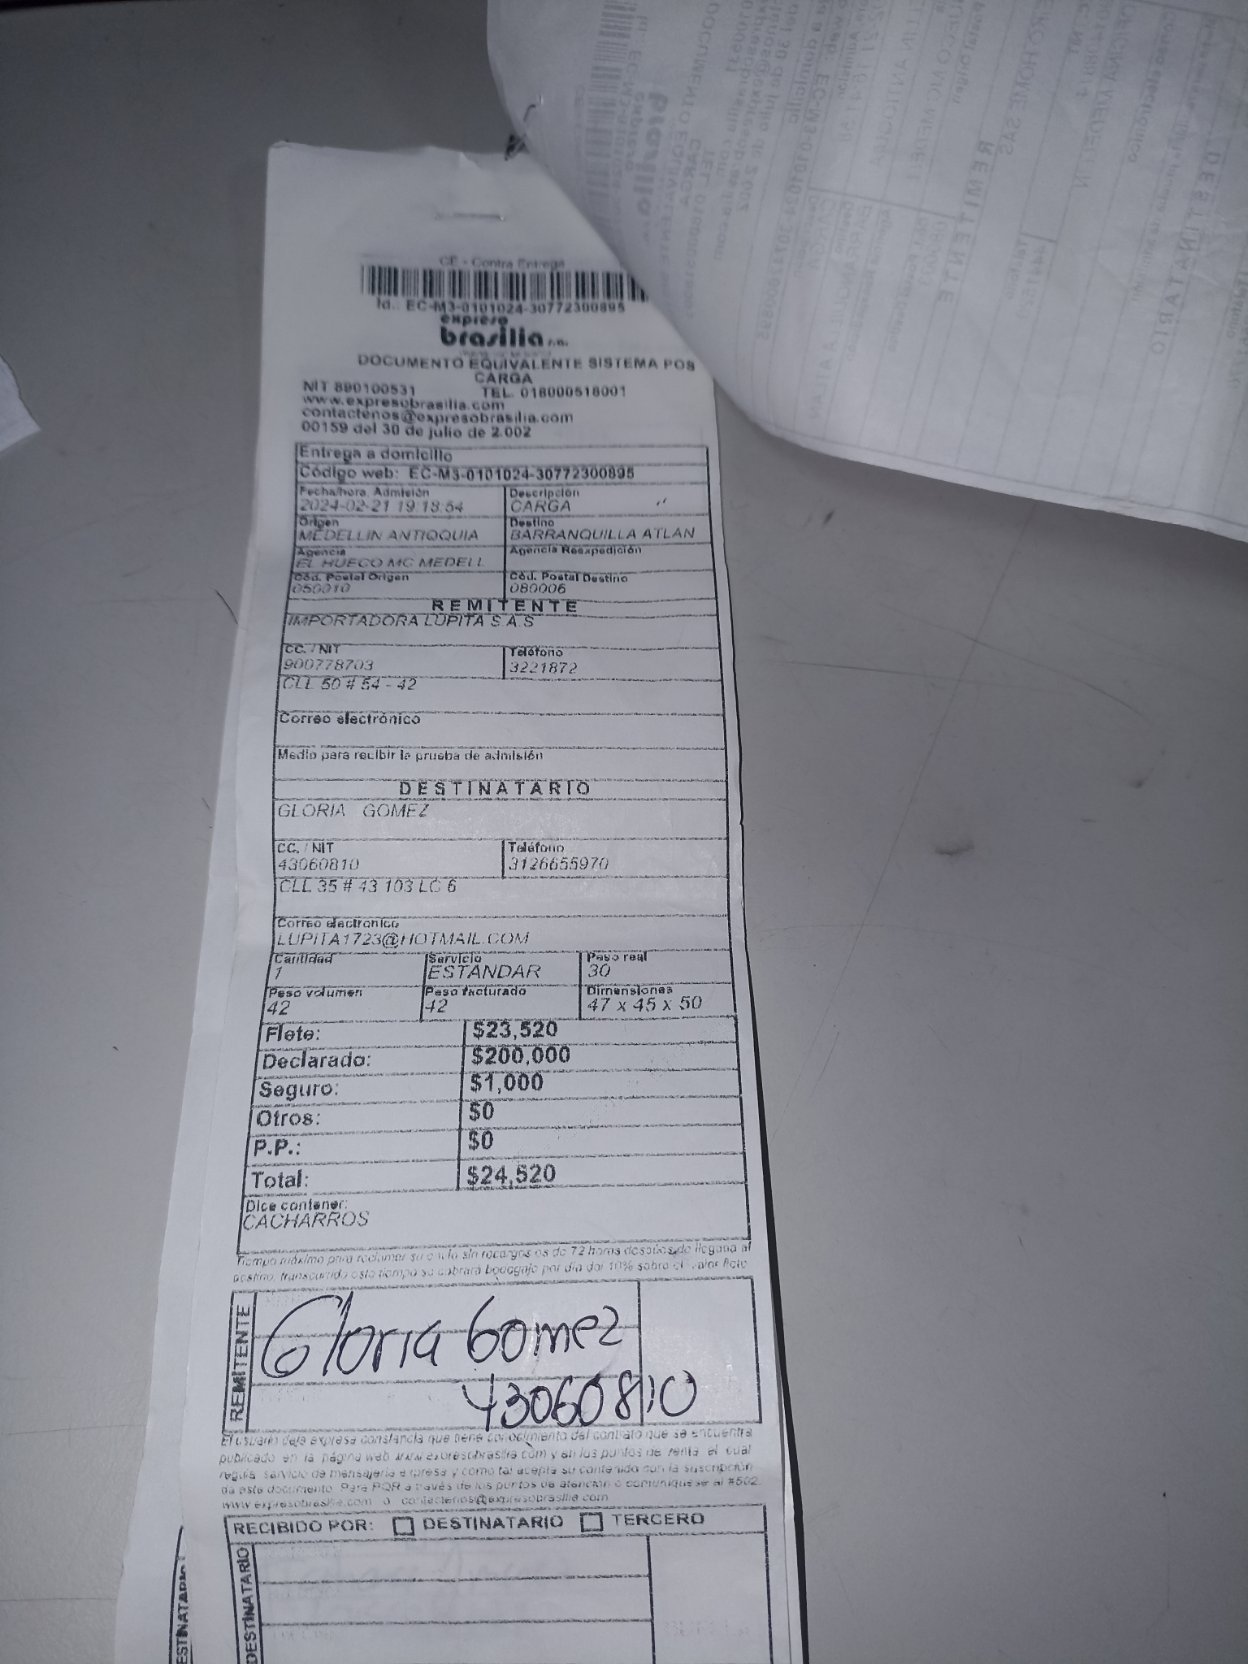 CE - Contra Entrega
Id.: EC-M3-0101024-30772300895
expreso
brasilia s.a.
DOCUMENTO EQUIVALENTE SISTEMA POS
CARGA
NIT 890100531 TEL. 018000518001
www.expresobrasilia.com
contactenos@expresobrasilia.com
00159 del 30 de julio de 2.002
Entrega a domicilio
Código web: EC-M3-0101024-30772300895
Fecha/hora. Admisión Descripción
2024-02-21 19:18:54 CARGA
Origen Destino
MEDELLIN ANTIOQUIA BARRANQUILLA ATLAN
Agencia Agencia Reexpedición
EL HUECO MC MEDELL
Cód. Postal Origen Cód. Postal Destino
050010 080006
REMITENTE
IMPORTADORA LUPITA S A S
CC. / NIT Teléfono
900778703 3221872
CLL 50 # 54 - 42
Correo electrónico
Medio para recibir la prueba de admisión
DESTINATARIO
GLORIA GOMEZ
CC. / NIT Teléfono
43060810 3126655970
CLL 35 # 43 103 LC 6
Correo electronico
LUPITA1723@HOTMAIL.COM
Cantidad Servicio Peso real
1 ESTANDAR 30
Peso volumen Peso facturado Dimensiones
42 42 47 x 45 x 50
Flete: $23,520
Declarado: $200,000
Seguro: $1,000
Otros: $0
P.P.: $0
Total: $24,520
Dice contener:
CACHARROS
Tiempo máximo para reclamar su envío sin recargos es de 72 horas después de llegada al
destino, transcurrido este tiempo se cobrara bodegaje por día del 10% sobre el valor flete
REMITENTE
Gloria Gomez
43060810
El usuario deja expresa constancia que tiene conocimiento del contrato que se encuentra
publicado en la página web www.expresobrasilia.com y en los puntos de venta el cual
regula servicio de mensajería expresa y como tal acepta su contenido con la suscripción
de este documento. Para PQR a través de los puntos de atención o comuníquese al #502.
www.expresobrasilia.com o contactenos@expresobrasilia.com
RECIBIDO POR: DESTINATARIO TERCERO
DESTINATARIO
DESTINATARIO